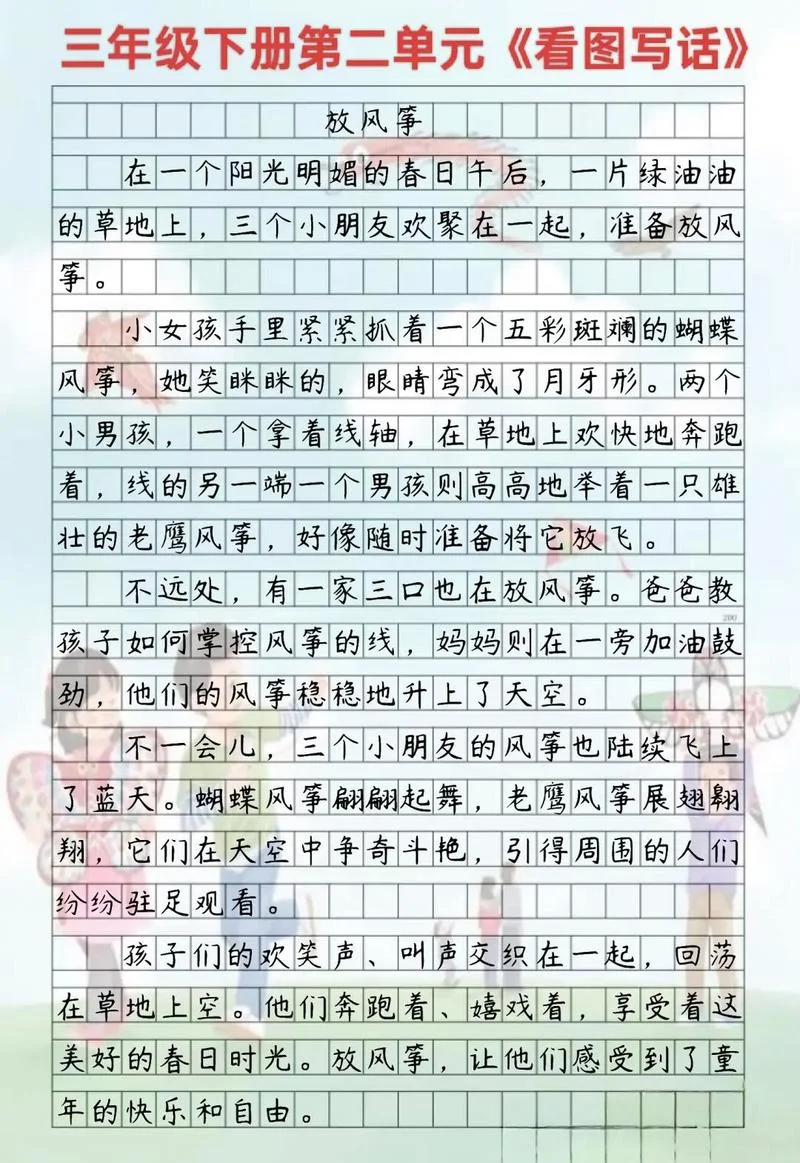 三年级下册第二单元《看图写话》
放风筝
在一个阳光明媚的春日午后，一片绿油油
的草地上，三个小朋友欢聚在一起，准备放风
筝。
小女孩手里紧紧抓着一个五彩斑斓的蝴蝶
风筝，她笑眯眯的，眼睛弯成了月牙形。两个
小男孩，一个拿着线轴，在草地上欢快地奔跑
着，线的另一端一个男孩则高高地举着一只雄
壮的老鹰风筝，好像随时准备将它放飞。
不远处，有一家三口也在放风筝。爸爸教
200
孩子如何掌控风筝的线，妈妈则在一旁加油鼓
劲，他们的风筝稳稳地升上了天空。
不一会儿，三个小朋友的风筝也陆续飞上
了蓝天。蝴蝶风筝翩翩起舞，老鹰风筝展翅翱
翔，它们在天空中争奇斗艳，引得周围的人们
纷纷驻足观看。
孩子们的欢笑声、叫声交织在一起，回荡
在草地上空。他们奔跑着、嬉戏着，享受着这
美好的春日时光。放风筝，让他们感受到了童
年的快乐和自由。